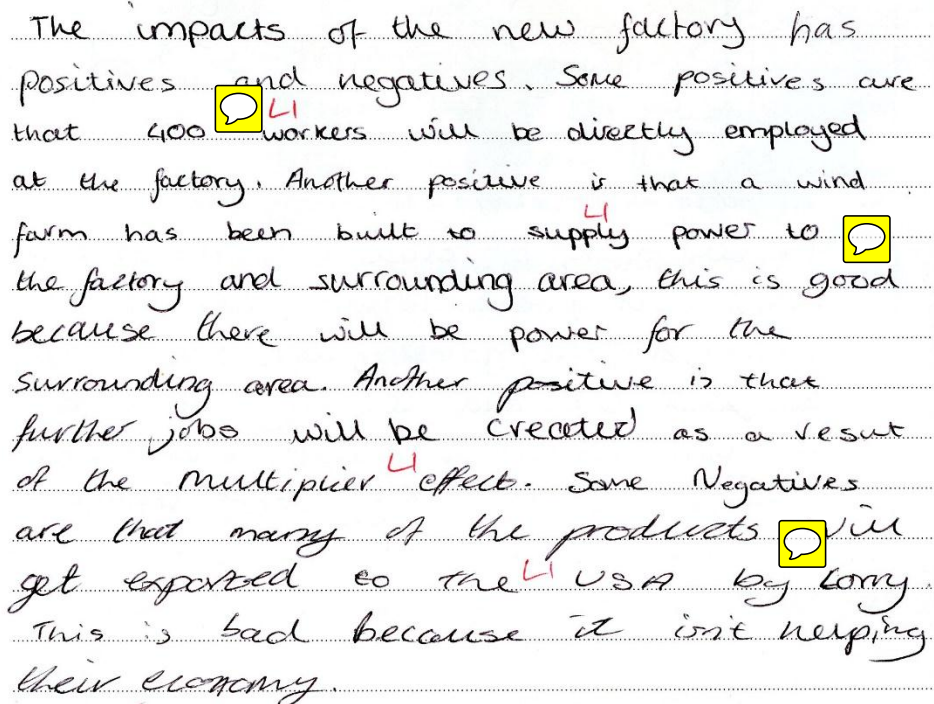 The impacts of the new factory has
positives and negatives. Some positives are
that 400 L1 workers will be directly employed
at the factory. Another positive is that a wind
L1
farm has been built to supply power to
the factory and surrounding area, this is good
because there will be power for the
surrounding area. Another positive is that
further jobs will be created as a resut
of the multiplier L1 effect. Some Negatives
are that many of the products will
get exported to the L1 USA by Lorry.
This is bad because it isn't helping
their economy.